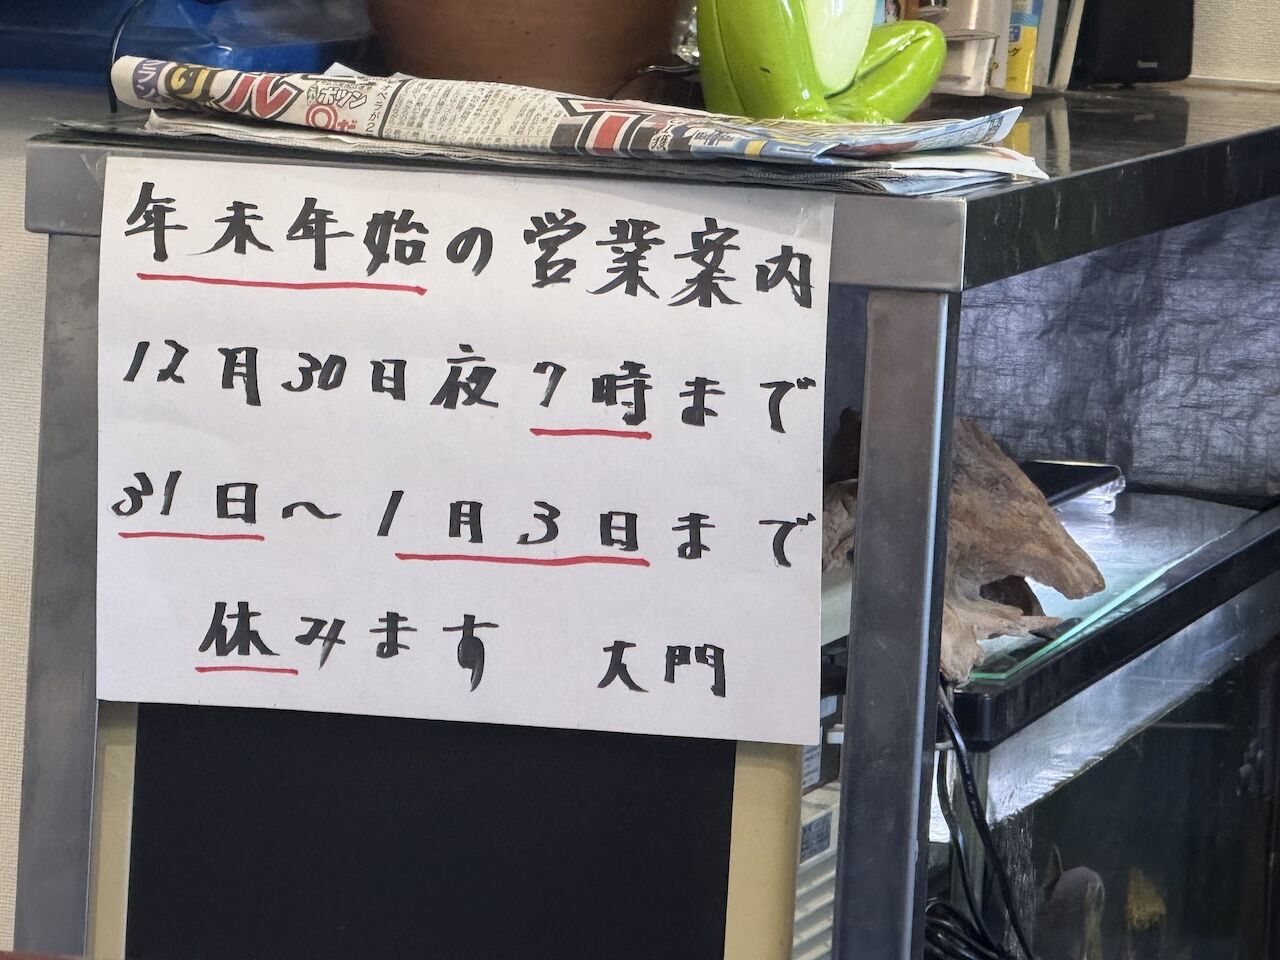 年末年始の営業案内
12月30日夜7時まで
31日〜1月3日まで
休みます 大門
Panasonic